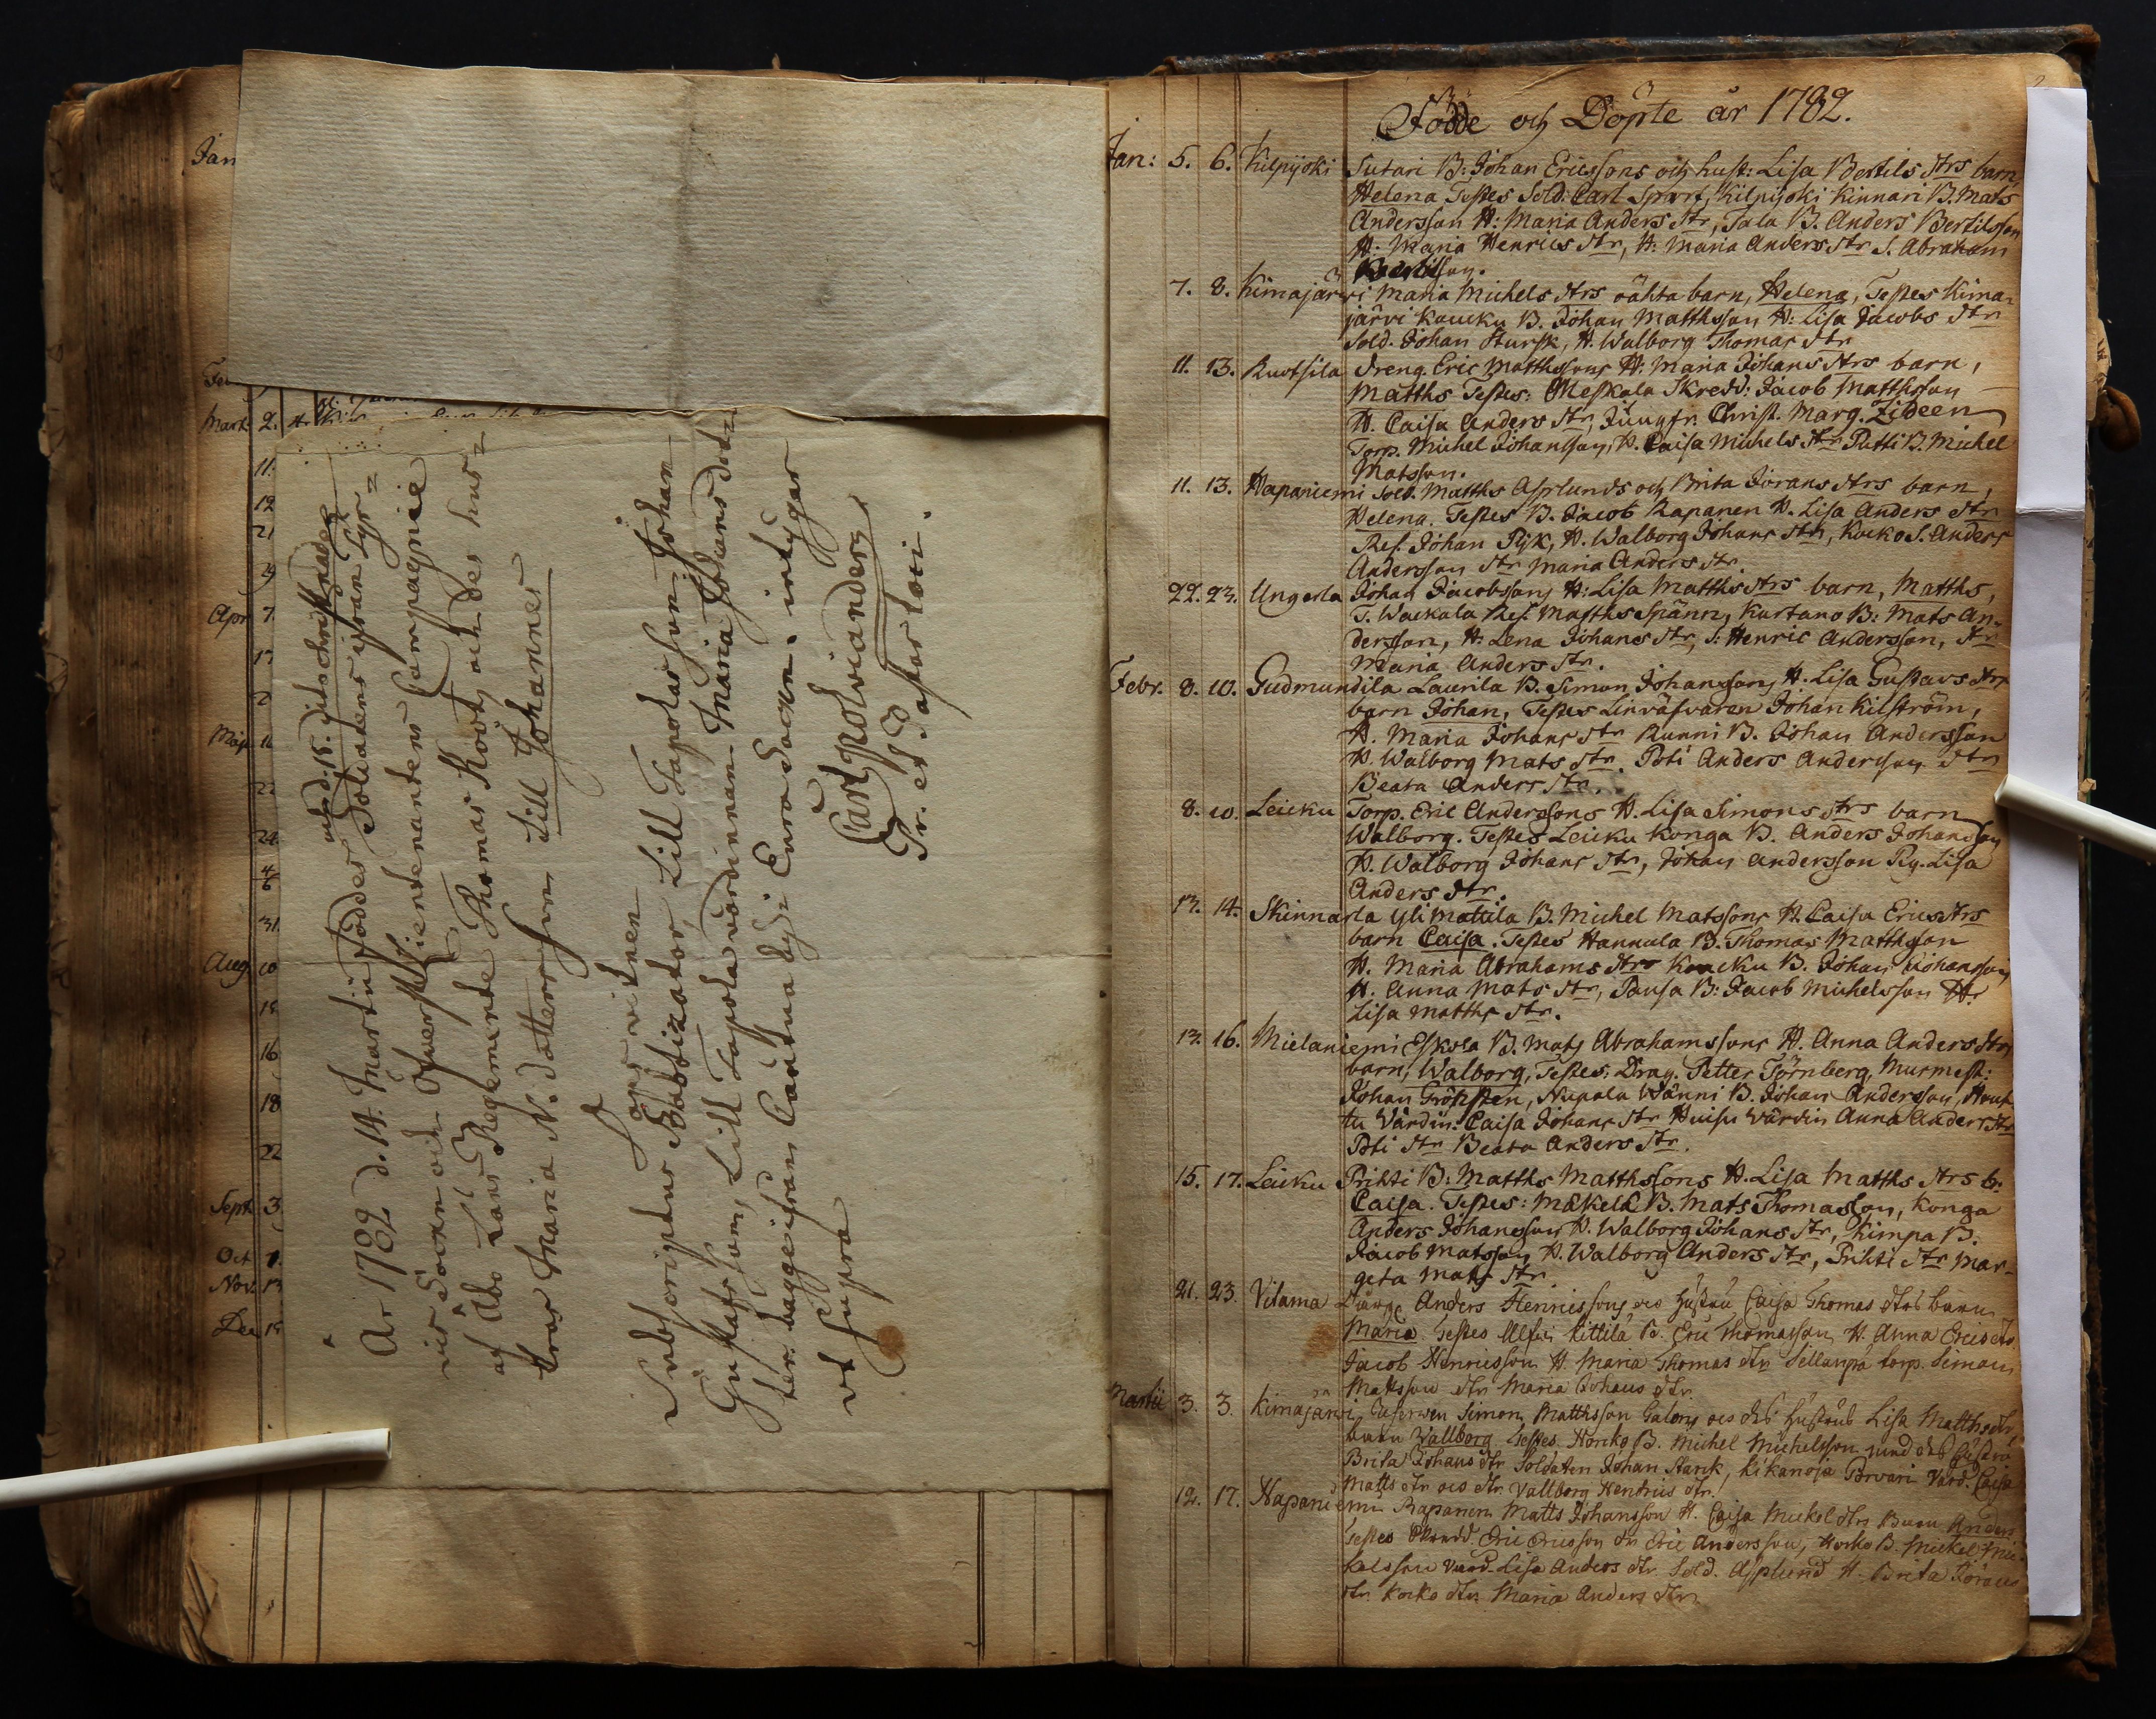 Jan
Feb
Mart. 2.
11.
12
21
29
Apr 7
17
2
Maj. 11
22
24
4
6
31
Aug. 10
15
16
18
22
Sept. 3.
Oct 1.
Nov. 13
Dec 15
År 1782 d. 14. Martii föddes och d. 15. dito christnades
af Åbo Läns Regemente Thomas
tros Maria N. dotters son Lill Johannes
Subscriptus Baptizator, Lill Tapolas son Johan
Gustafsson, Lill Tapola värdinnan Maria Johans dot=
ter. bägge ifrån Cautua by i Eura Sokn. intygar
ut supra
Carl Polviander
Pr. et Pastor loci.
Födde och Döpte år 1782.
Jan: 5. 6. Kilpijoki Sutari B: Johan Ericssons och hust: Lisa Bertils dtrs barn,
Helena Testes Sold: Carl Sport, Kilpijoki Kinnari B. Mats
Andersson H: Maria Anders dtr, Tala B. Anders Bertilsson
H. Maria Henrics dtr, H: Maria Anders dtr S. Abraham
Bertilsson.
7. 8. Kimajärvi Maria Michels dtrs oäkta barn, Helena, Testes Kima=
järvi Koucku B. Johan Matthsson H: Lisa Jacobs dtr
Sold. Johan Stursk, H. Walborg Thomas dtr
11. 13. Ruotsila dreng Eric Matthssons H. Maria Johans dtrs barn,
Matths Testes: Meskala Skredd: Jacob Matthsson
H. Caisa Anders dtr, Jungfr. Christ. Marg. Zideen
Torp. Michel Johansson, H. Caisa Michels dtr Putti B. Michel
Matsson.
11. 13. Hapaniemi Sold. Matths Asplunds och Brita Jörans dtrs barn,
Helena. Testes B. Jacob Rapanen H. Lisa Anders dtr
Res. Johan Pijk, H. Walborg Johans dtr, Kocko S. Anders
Andersson dtr Maria Anders dtr.
22. 23. Ungerla Johan Jacobssons H: Lisa Matths dtrs barn, Matths,
T. Wackala Res. Matths Spänn, Kartano B: Mats An=
dersson, H: Lena Johans dtr, S: Henric Andersson, dtr
Maria Anders dtr.
Febr. 8. 10. Gudmundila Laurila B. Simon Johanssons H. Lisa Gustavs dtrs
barn Johan, Testes Linväfvaren Johan Kilström,
H. Maria Johans dtr Runni B. Johan Andersson
H. Walborg Mats dtr. Poti Anders Andersson dtr
Beata Anders dtr.
8. 10. Leicku Torp. Eric Anderssons H. Lisa Simons dtrs barn
Walborg. Testes Leicku Konga B. Anders Johansson
H. Walborg Johans dtr, Johan Andersson Pig. Lisa
Anders dtr.
13. 14. Skinnarla Yli Mattila B. Michel Matssons H. Caisa Erics dtrs
barn Caisa. Testes Hannula B. Thomas Matthsson
H. Maria Abrahams dtrs Koucku B. Johan Johansson
H. Anna Mats dtr, Pausa B: Jacob Michelsson H.
Lisa Matths dtr.
13. 16. Mielaniemi Eskola B. Mats Abrahamssons H. Anna Anders dtrs
barn, Walborg, Testes: Drag. Petter Törnberg, Murmest:
Johan Grönsten, Nupala Wänni B. Johan Andersson, Hout
tu Värdin: Caisa Johans dtr Huisu Värdin Anna Anders dtr
Poti dtr Beata Anders dtr.
15. 17. Leicku Prihti B: Matths Matthssons H. Lisa Matths dtrs b:
Caisa. Testes: Mäkelä B. Mats Thomasson, Konga
Anders Johansson H. Walborg Johans dtr, Kimpa B.
Jacob Matsson H. Walborg Anders dtr, Prihti dtr Mar=
geta Mats dtr.
21. 23. Vitama Anders Henricssons och hustru Caisa Thomas dtrs barn
Maria Testes Uljui Kittilä B. Eric Thomasson H. Anna Erics dtr
Jacob Henricsson H. Maria Thomas dtr Sillanpä torp. Simon
Matsson dtr Maria Johans dtr.
Martii 3. 3. Kimajärvi Simon Matthsson och des hustrus Lisa Matths dtr
barn Wallborg Testes Horcko B. Michel Michelsson med des hustru
Brita Johans dtr Soldaten Johan Starck, Kikanoja Värd. Caisa
Matts dtr och dtr Vallborg Hendrics dtr.
12. 17. Hapaniemi Rapanen Matts Johansson H. Caisa Mickel dtr Barn Anders
Testes Skredd. Eric Ericsson dr Eric Andersson, Kocko B. Mickel Mic-
kelsson Värd. Lisa Anders dtr Sold. Asplund H. Brita Jörans
dtr. Kocko dtr Maria Anders dtr